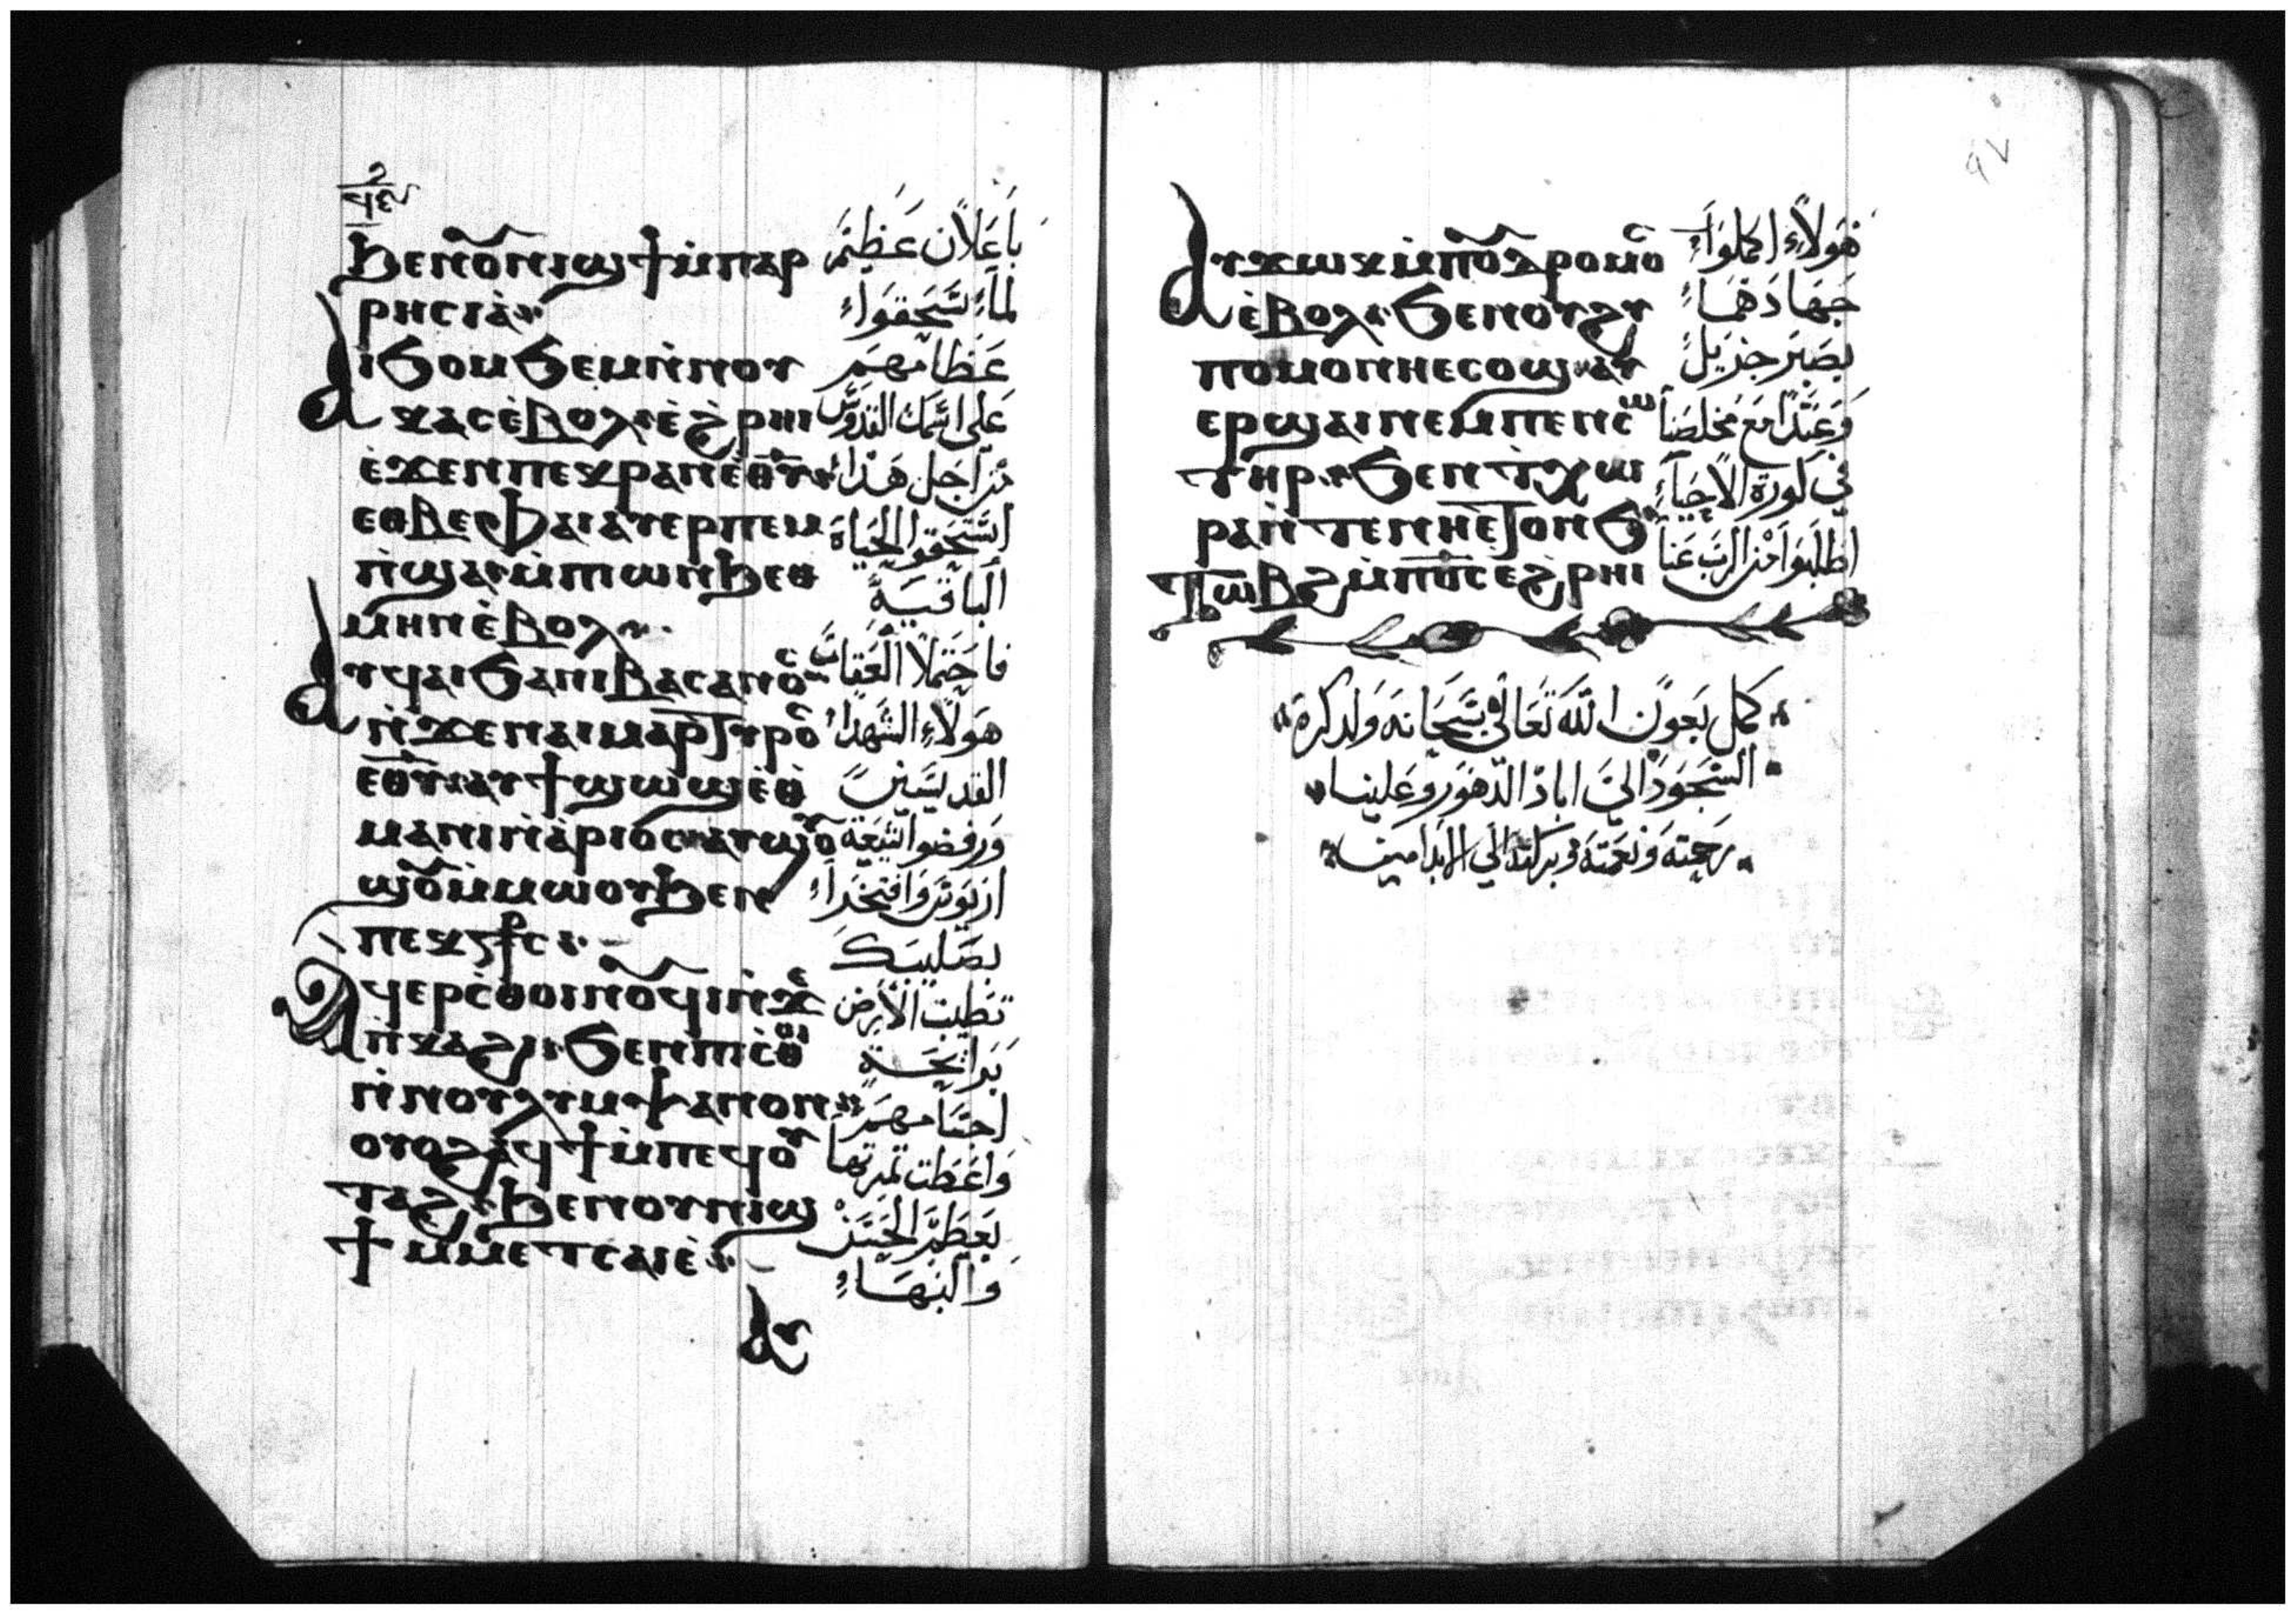 ϧⲉⲛⲟ̅ⲛⲓϣϯⲙ̀ⲡⲁⲣ
ⲣⲏⲥⲓⲁ̀
ⲁⲓϭⲟⲙϭⲉⲙⲛ̀ⲛⲟⲩ
ⲕⲁⲥⲉ̀ⲃⲟⲗⲉ̀ϩⲣⲏⲓ
ⲉ̀ϫⲉⲛⲡⲉⲕⲣⲁⲛⲉ̅ⲑ̅ⲩ̅
ⲉⲑⲃⲉⲫⲁⲓⲁⲩⲉⲣⲡⲉⲙ
ⲡ̀ϣⲁⲙ̀ⲡⲓⲱⲛϧⲉⲑ
ⲙⲏⲛⲉ̀ⲃⲟⲗ
ⲁⲩϥⲁⲓϭⲁⲛⲓⲃⲁⲥⲁⲛⲟⲥ
ⲛ̀ϫⲉⲛⲁⲓⲙⲁⲣⲧⲩⲣⲟⲥ
ⲉ̅ⲑ̅ⲩ̅ⲁⲩϯϣⲱϣⲉ̀ⲑ
ⲙⲁⲛⲓⲛ̀ⲁ̀ⲣⲓⲟⲥⲁⲩϣⲟ̅
ϣⲟ̅ⲙ̀ⲙⲱⲟⲩϧⲉⲛ
ⲡⲉⲕ
ⲁϥⲉⲣⲥ̀ⲑⲟⲓⲛⲟ̅ϥⲓⲛ̀ϫⲉ
ⲡ̀ⲕⲁϩⲓϭⲉⲛⲡⲓⲥ̀ⲑⲟⲓ
ⲛ̀ⲛⲟⲩⲗⲩⲙⲯⲁⲛⲟⲛ
ⲟⲩⲟϩⲁϥϯⲙ̀ⲡⲉϥⲟⲩ
ⲧⲁϩϧⲉⲛⲟⲩⲛⲓϣ
ϯⲙⲙⲉⲧⲥⲁⲓⲉ̀
ⲁⲩ
باعلان عظيم
لما استحقوا
عظامهم
على اسمك القدوس
من اجل هذا
استحقوا الحياة
الباقية
فاحتملا العقابات
هولاء الشهداء
القديسين
ورفضوا
اريوس وافتخرا
بصليبك
تطيبت الارض
برايحة
اجسامهم
واعطت ثمرتها
بعظم الحسن
والبهاء
٩٧
ⲁⲩϫⲱⲕⲙ̀ⲡⲟ̅ⲇⲣⲟⲙⲟⲥ
ⲉ̀ⲃⲟⲗϭⲉⲛⲟⲩϩⲩ
ⲡⲟⲙⲟⲛⲏⲉⲥⲟϣⲁⲩ
ⲉⲣϣⲁⲓⲛⲉⲙⲡⲉⲛⲥⲱ
ⲧⲏⲣϭⲉⲛⲧ̀ⲭⲱ
ⲣⲁⲛ̀ⲧⲉⲛⲏⲉⲧⲟⲛϭ
ⲧⲱⲃϩⲙ̀ⲡ̅ⲟ̅ⲥ̅ⲉϩⲣⲏⲓ
هولاء اكملوا
جهادهما
بصبر جزيل
وعيدا مع مخلصنا
في كورة الاحياء
اطلبوا من الرب عنا
كمل بعون الله تعالى سبحانه ولذكره
السجود الى اباد الدهور وعلينا
رحمته ونعمته وبركته الى الابد امين